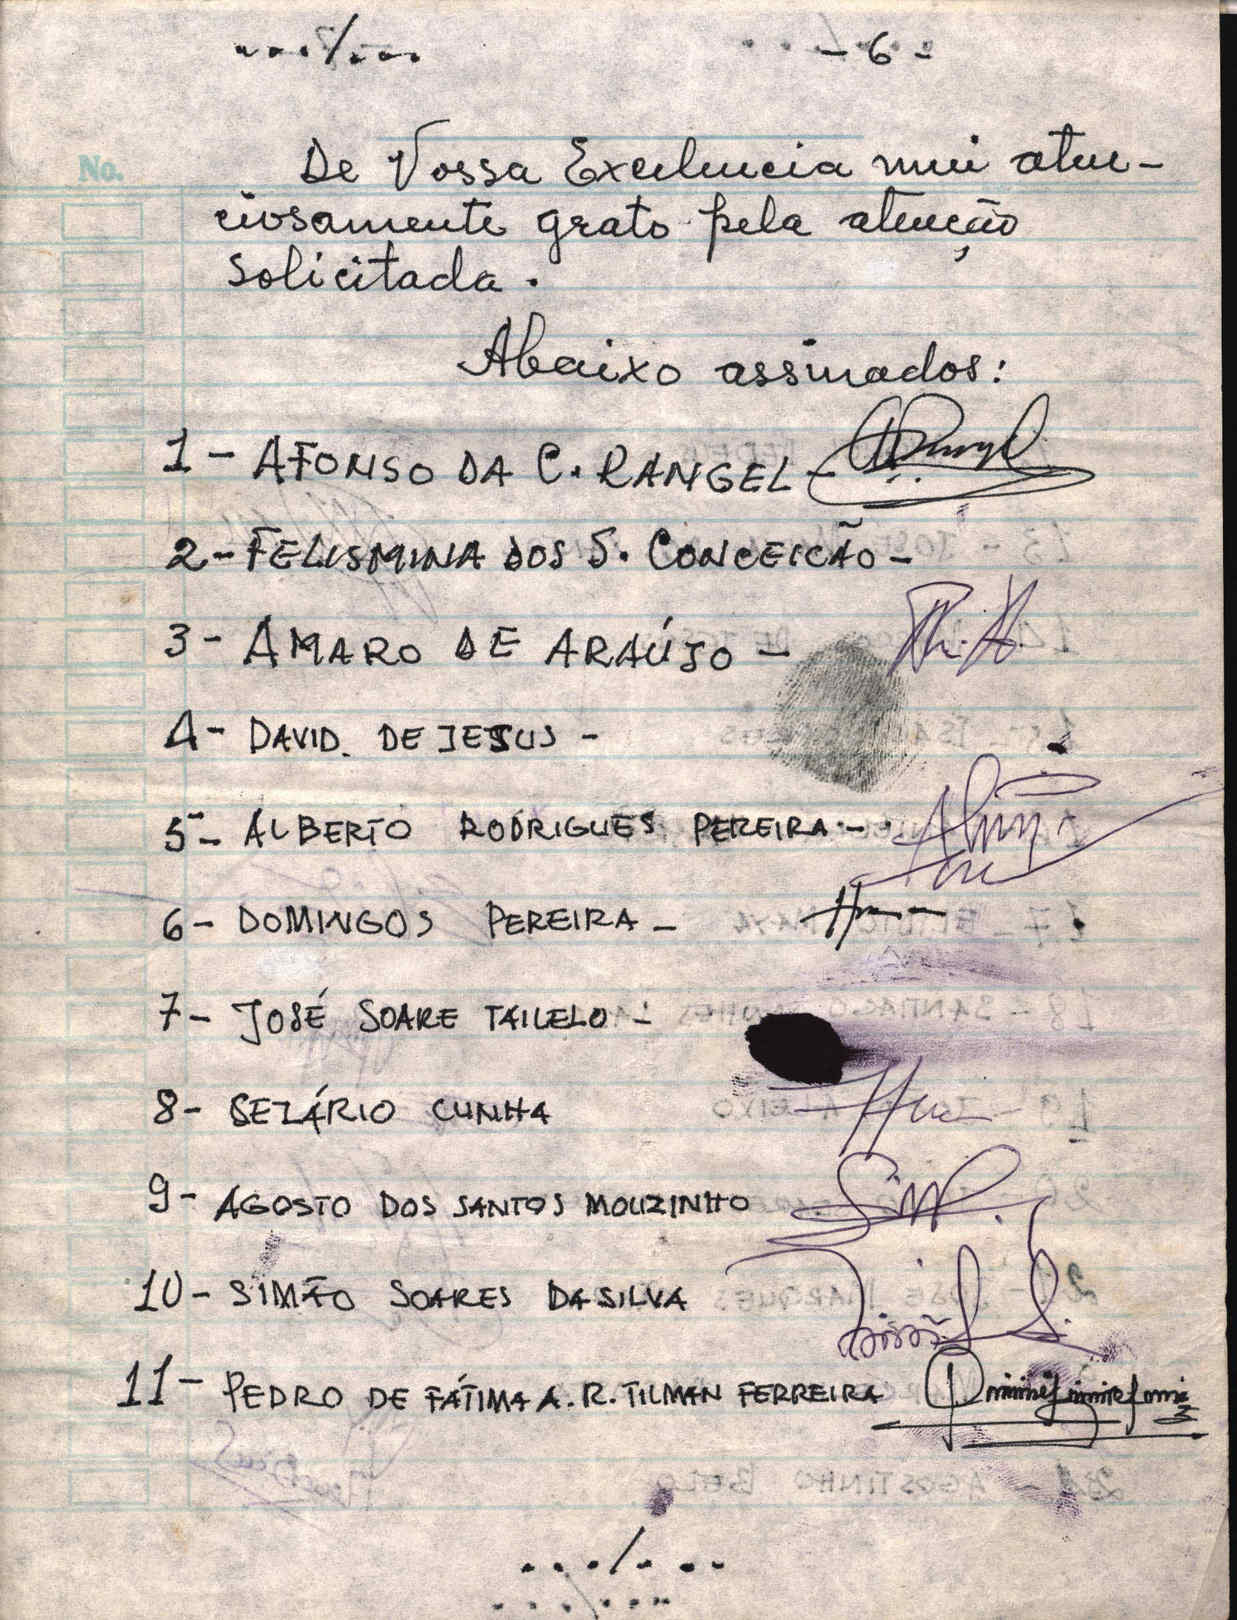 .../...
- 6 -
No.
De Vossa Excelencia mui aten-
ciosamente grato pela atenção
solicitada.
Abaixo assinados:
1 - AFONSO DA C. RANGEL -
2 - FELISMINA DOS S. CONCEICÃO -
3 - AMARO DE ARAÚJO -
4 - DAVID. DE JESUS -
5 - ALBERTO RODRIGUES PEREIRA -
6 - DOMINGOS PEREIRA -
7 - JOSÉ SOARE TAILELO -
8 - SEZÁRIO CUNHA
9 - AGOSTO DOS SANTOS MOUZINHO
10 - SIMÃO SOARES DA SILVA
11 - PEDRO DE FÁTIMA A. R. TILMAN FERREIRA
.../...